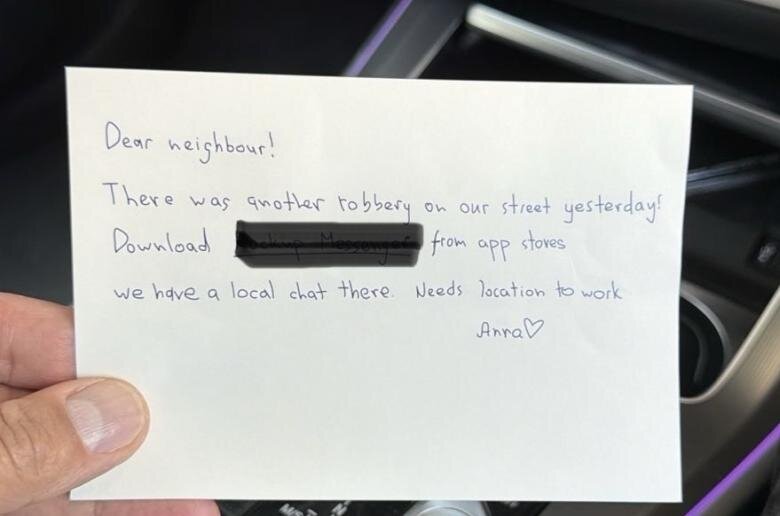 Dear neighbour!
There was another robbery on our street yesterday!
Download from app stores
we have a local chat there. Needs location to work
Anna♡